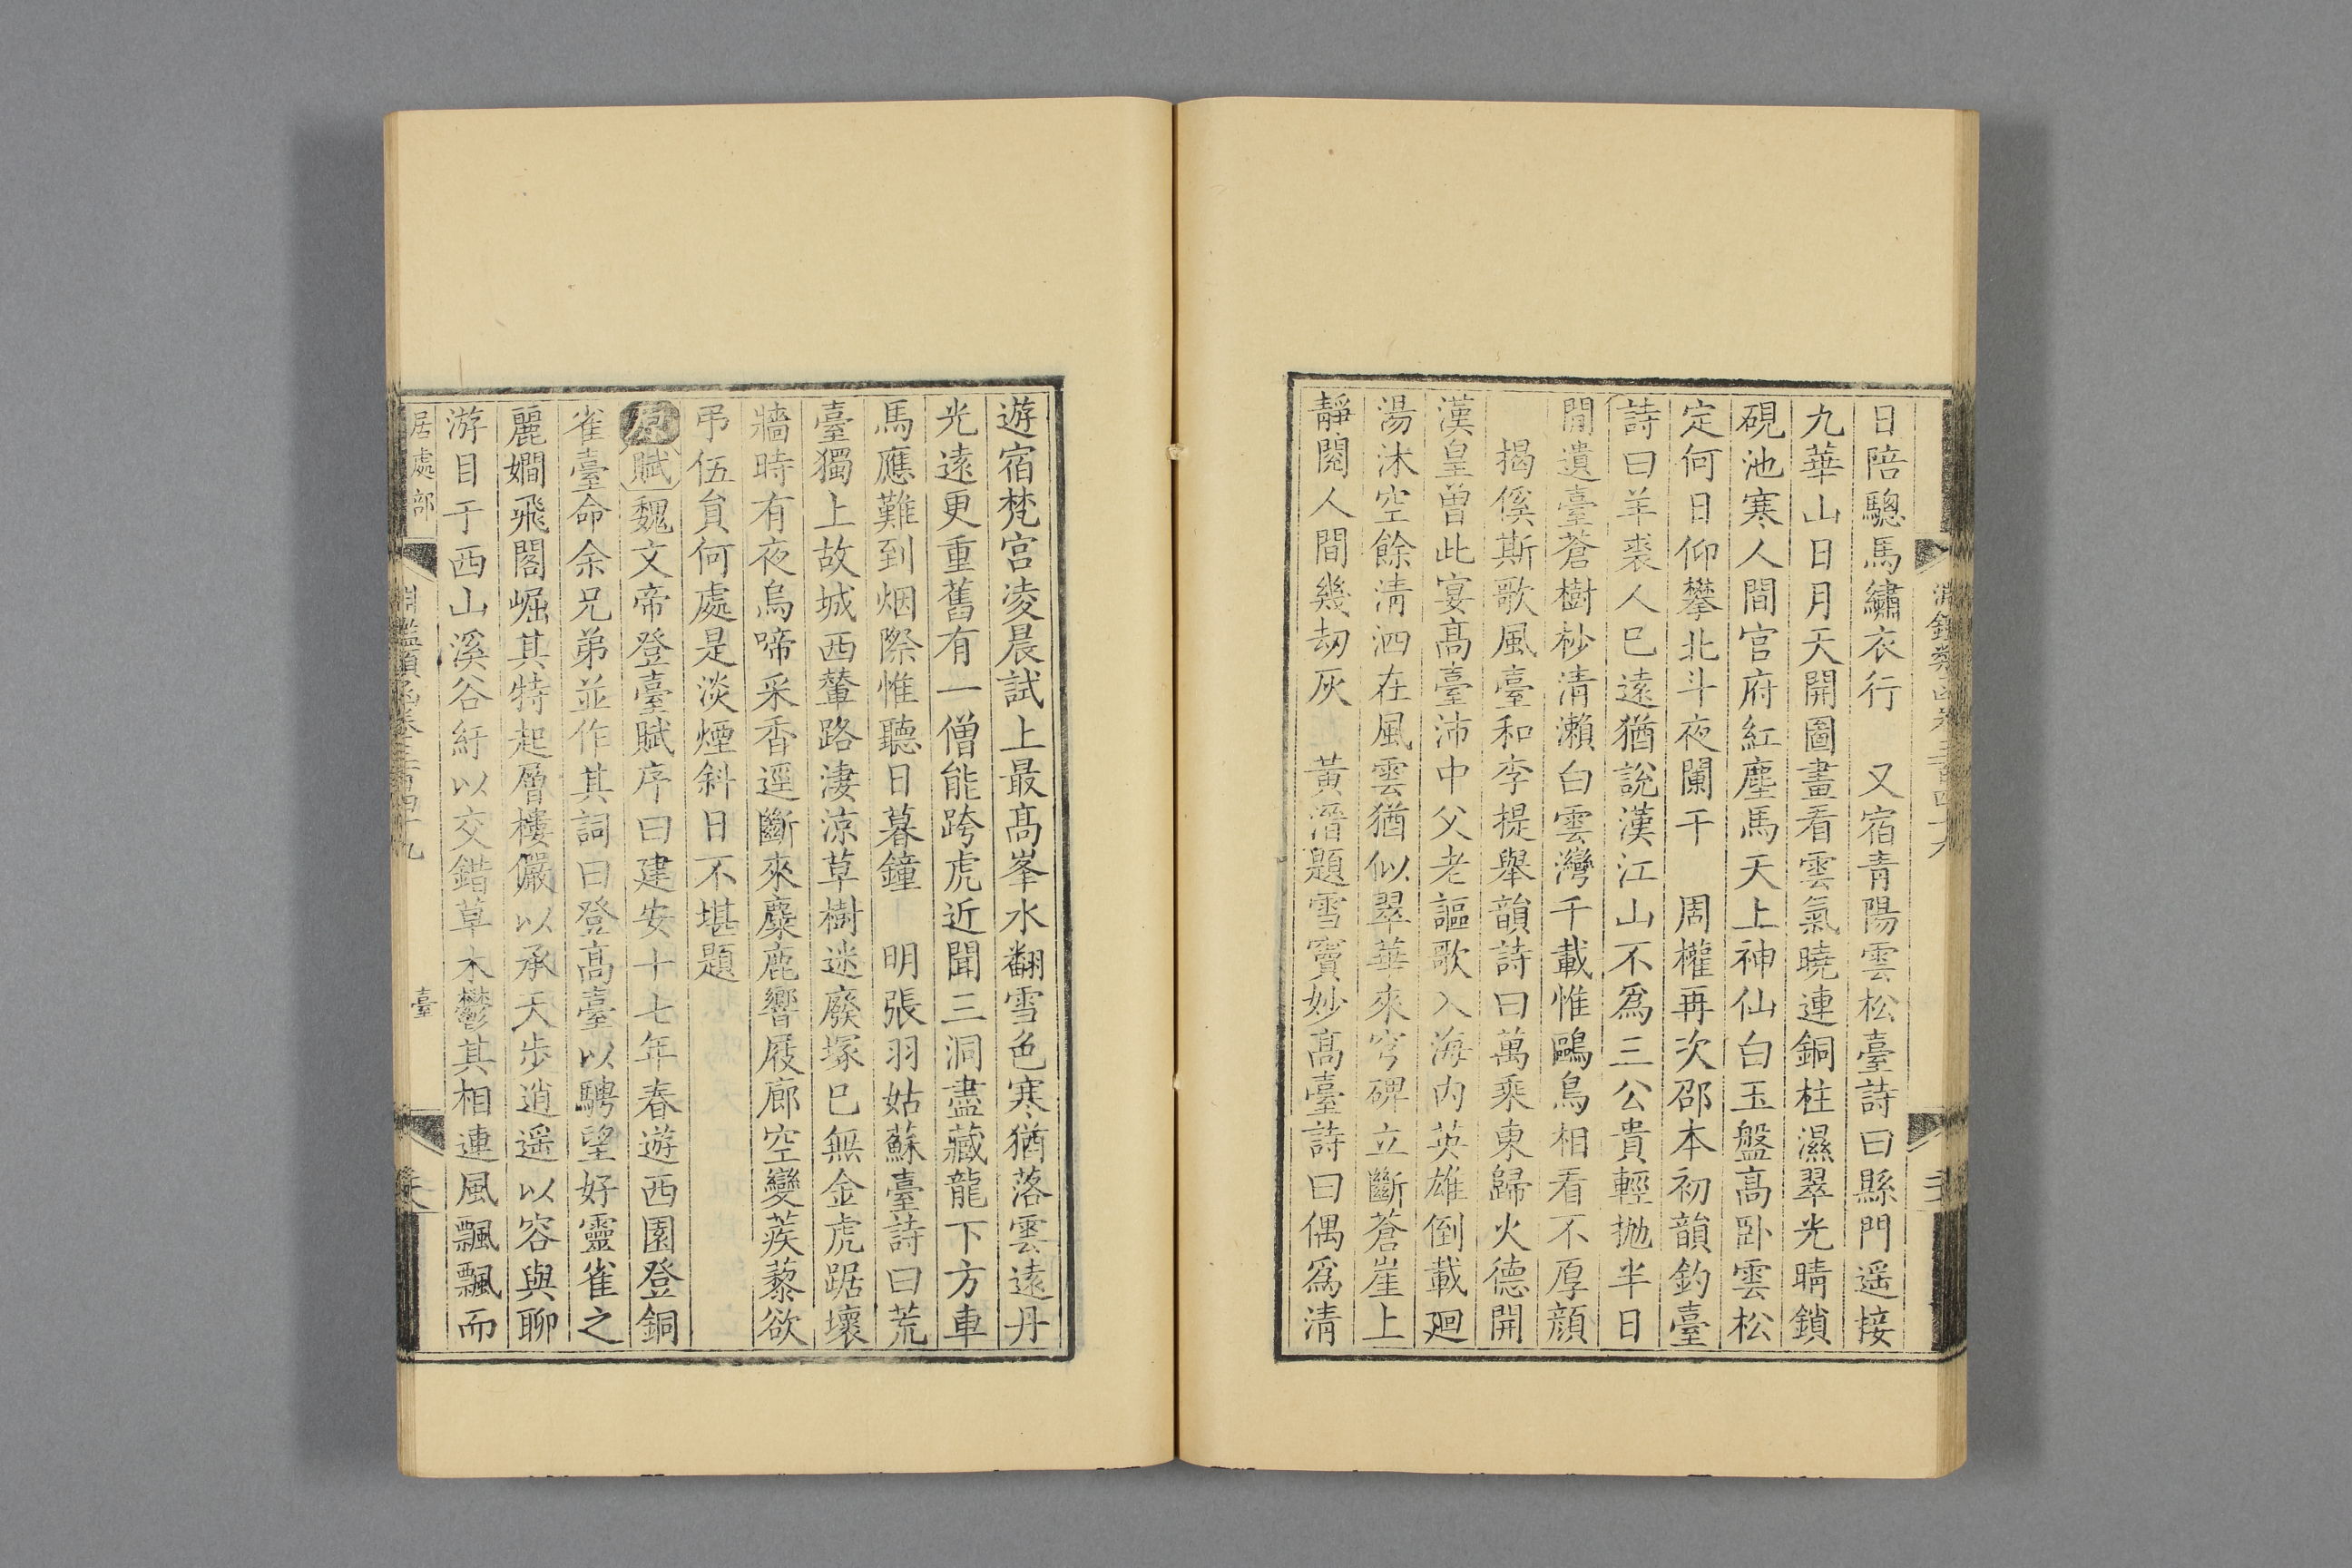 日陪驄馬繡衣行　又宿青陽雲松臺詩曰縣門遥接
九華山日月天開圖畫看雲氣曉連銅柱濕翠光晴鎖
硯池寒人間官府紅塵馬天上神仙白玉盤高卧雲松
定何日仰攀北斗夜闌干　周權再次邵本初韻釣臺
詩曰羊裘人已遠猶說漢江山不爲三公貴輕抛半日
閒遺臺蒼樹杪清瀨白雲灣千載惟鷗鳥相看不厚顔
揭傒斯歌風臺和李提舉韻詩曰萬乘東歸火德開
漢皇曽此宴髙臺沛中父老謳歌入海内英雄倒載廻
湯沐空餘清泗在風雲猶似翠華來穹碑立斷蒼崖上
靜閱人間幾劫灰　黃溍題雪竇妙髙臺詩曰偶爲清
遊宿梵宫凌晨試上最髙峯水翻雪色寒猶落雲遠丹
光遠更重舊有一僧能跨虎近聞三洞盡藏龍下方車
馬應難到烟際惟聽日暮鐘　明張羽姑蘇臺詩曰荒
臺獨上故城西輦路淒涼草樹迷廢塚已無金虎踞壞
牆時有夜烏啼采香逕斷來麋鹿響屧廊空變蒺藜欲
弔伍貟何處是淡煙斜日不堪題
原賦魏文帝登臺賦序曰建安十七年春遊西園登銅
雀臺命余兄弟並作其詞曰登髙臺以騁望好靈雀之
麗嫺飛閣崛其特起層樓儼以承天步逍遥以容與聊
游目于西山溪谷紆以交錯草木鬱其相連風飄飄而
居處部
淵鑑類函卷三百四十九
臺